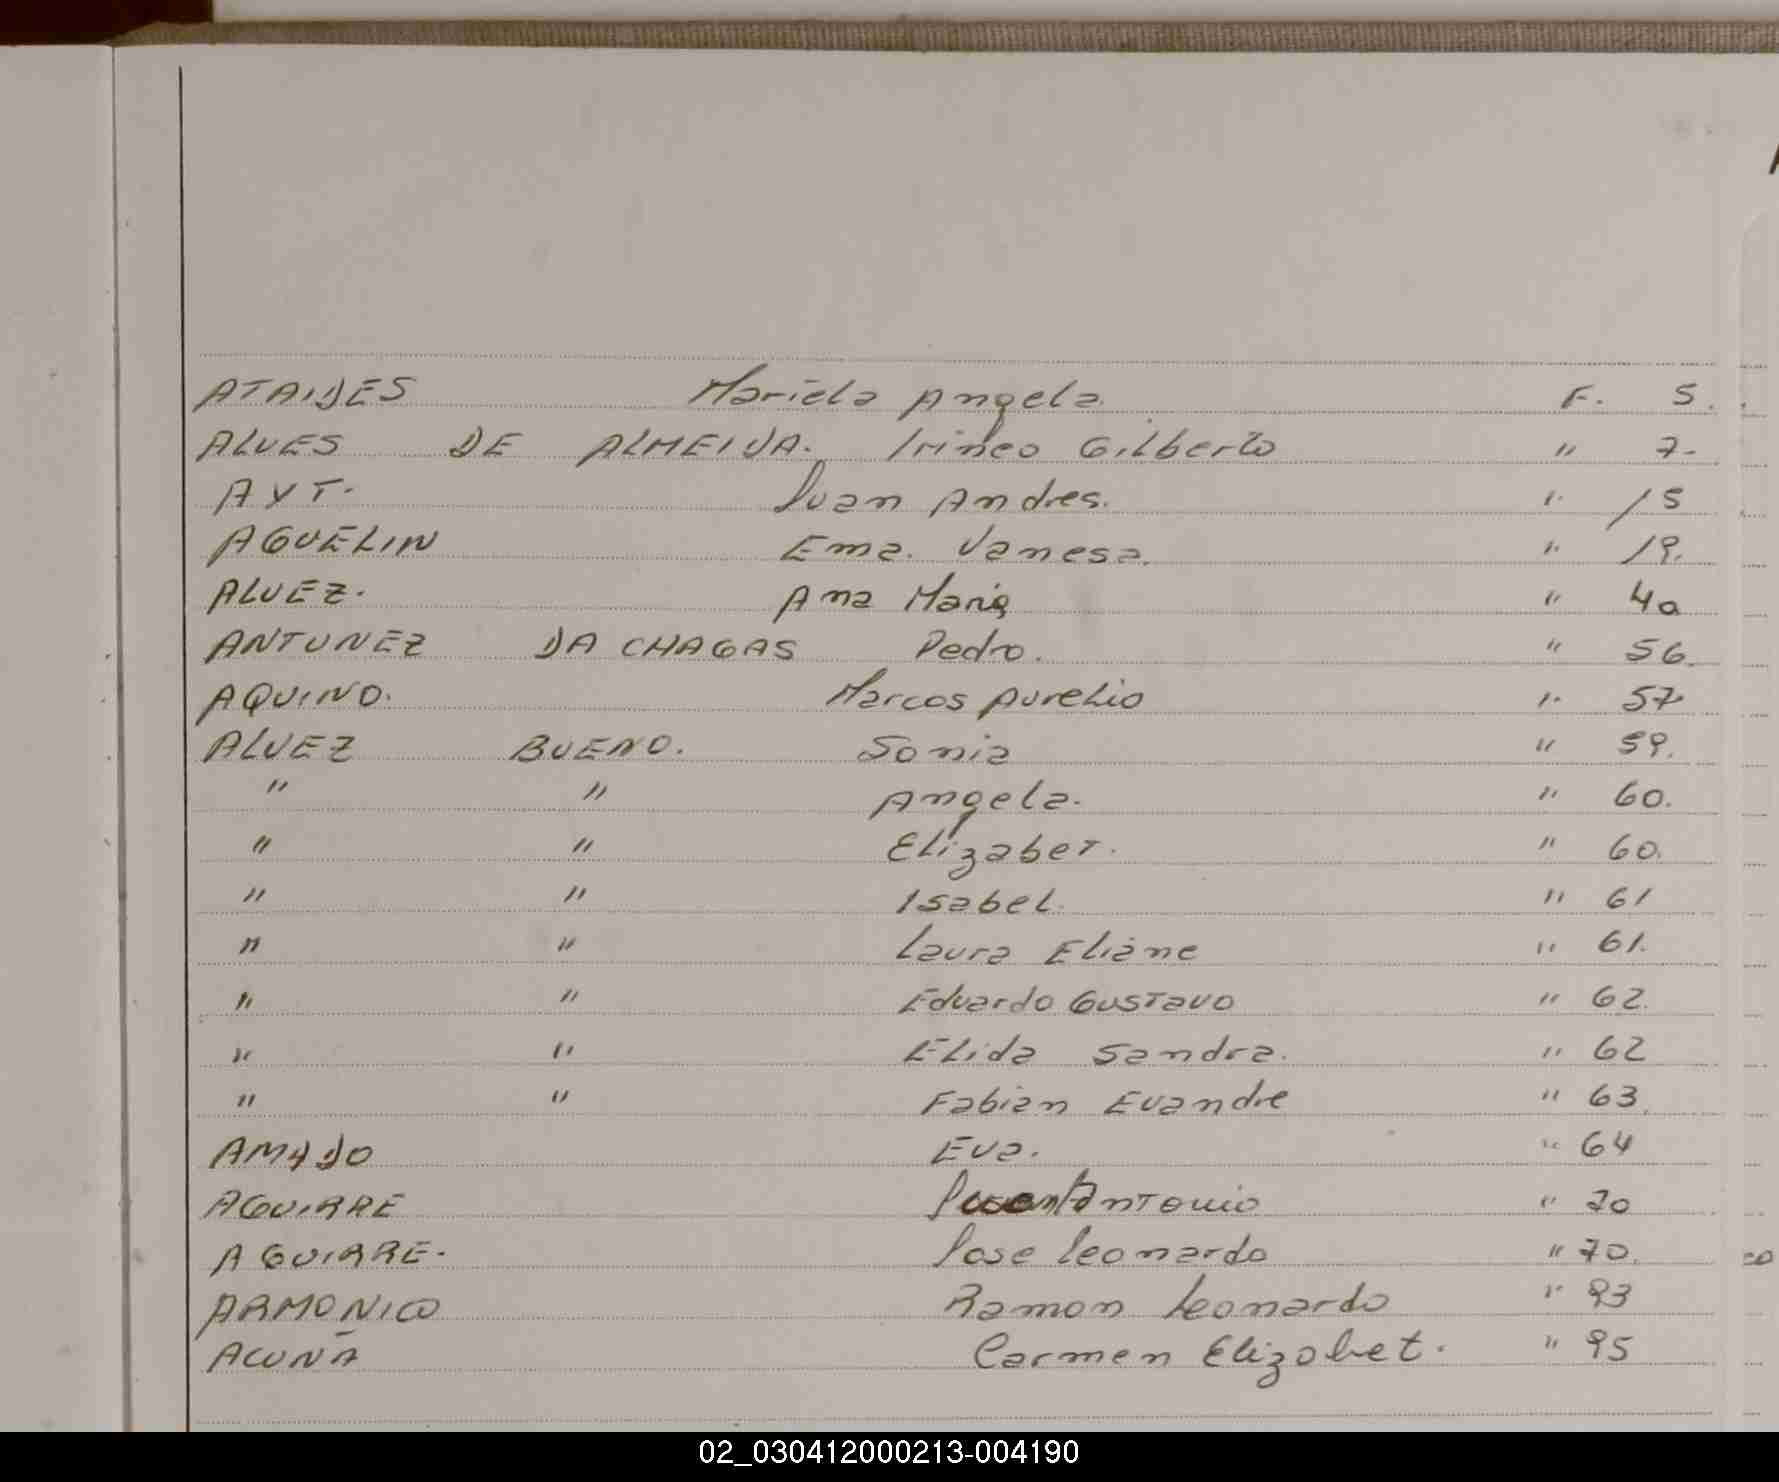 ATAIDES Mariela Angela. F. 5.
ALVES DE ALMEIDA. Irineo Gilberto " 7.
AYT. Juan Andres. " 15
AGUELIN Ema. Vanesa. " 19.
ALVEZ. Ana Maria " 40
ANTUNEZ DA CHAGAS Pedro. " 56.
AQUINO. Marcos Aurelio " 57
ALVEZ BUENO. Sonia " 59.
" " Angela. " 60.
" " Elizabet. " 60.
" " Isabel. " 61
" " Laura Eliane " 61.
" " Eduardo Gustavo " 62.
" " Elida Sandra. " 62
" " Fabian Evandre " 63.
AMADO Eva. " 64
AGUIRRE Antonio " 70
AGUIRRE. Jose Leonardo " 70.
ARMONICO Ramon Leonardo " 93
ACUÑA Carmen Elizabet. " 95
02_030412000213-004190